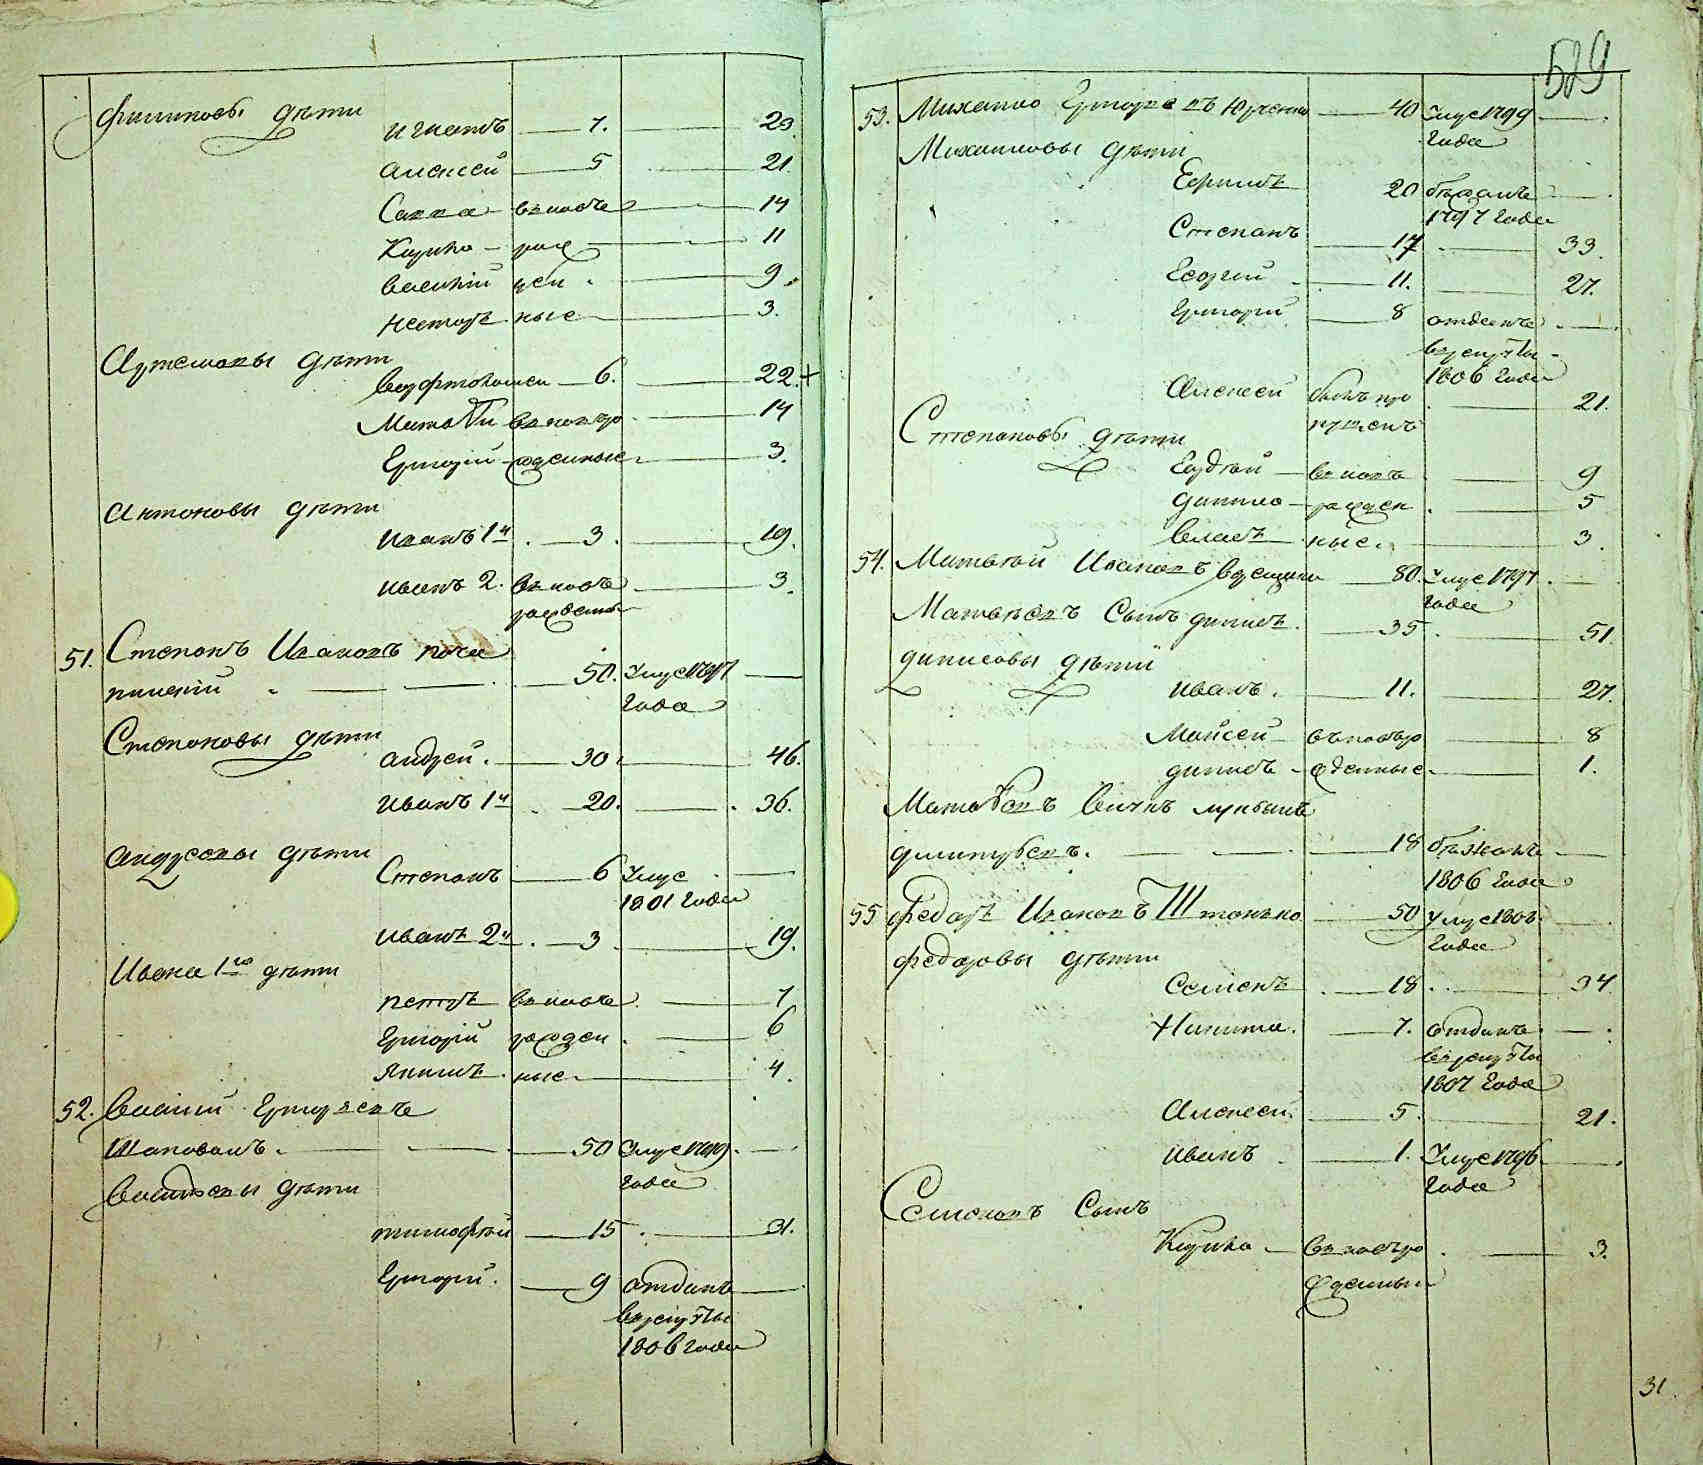 Филиповы дѣти
Игнатъ 7. 23.
Алексей 5 21.
Савва вновь 14
Кирило рож 11
Василий ден 9.
Несторъ ные 3.
Артемовы дѣти
Варфоломей 6. 22.+
Матвѣй вновьро 14
Григорій жденные 3.
Антоновы дѣти
Иванъ 1й 3. 19.
Иванъ 2. вновь 3.
рожденъ
51. Степанъ Ивановъ
50. Умре 1797
года
Степановы дѣти
Андрей. 30. 46.
Иванъ 1й 20. 36.
Андреевы дѣти
Степанъ 6 Умре
1801 года
Иванъ 2й 3 19.
Ивана 1го дѣти
Петръ вновь 7
Григорій рожден 6
Якимъ ные 4.
52. Василий Григорьевъ
Шаповалъ. 50 Умре 1799.
года
Васильевы дѣти
Тимофѣй 15 31.
Григорій. 9 отданъ
врекруты
1806 года
529
53. Михайло Григорьевъ Юрченко 40 Умре 1799
года
Михайловы дѣти
Ефимъ 20 бежалъ
1797 года
Степанъ 17 33.
Георгий 11. 27.
Григорій 8 отданъ
врекруты
1806 года
Алексей былъ про 21.
пущенъ
Степановы дѣти
Андрей вновь 9
Данило рожден 5
Власъ ные. 3.
54. Матвѣй Ивановъ 80. Умре 1797
года
Матвѣевъ Сынъ Денисъ. 35. 51.
Денисовы дѣти
Иванъ. 11. 27.
Моисей вновьро 8
Денисъ жденные 1.
Матвѣевъ
Дмитрѣевъ. 18 бѣжалъ
1806 года
55 Федоръ Ивановъ Штанько 50 Умре 1808
года
Федоровы дѣти
Семенъ 18. 34
Никита. 7. отданъ
врекруты
1807 года
Алексей. 5. 21.
Иванъ 1. Умре 1796
года
Семеновъ Сынъ
Кирило вновьро 3.
жденный
31.